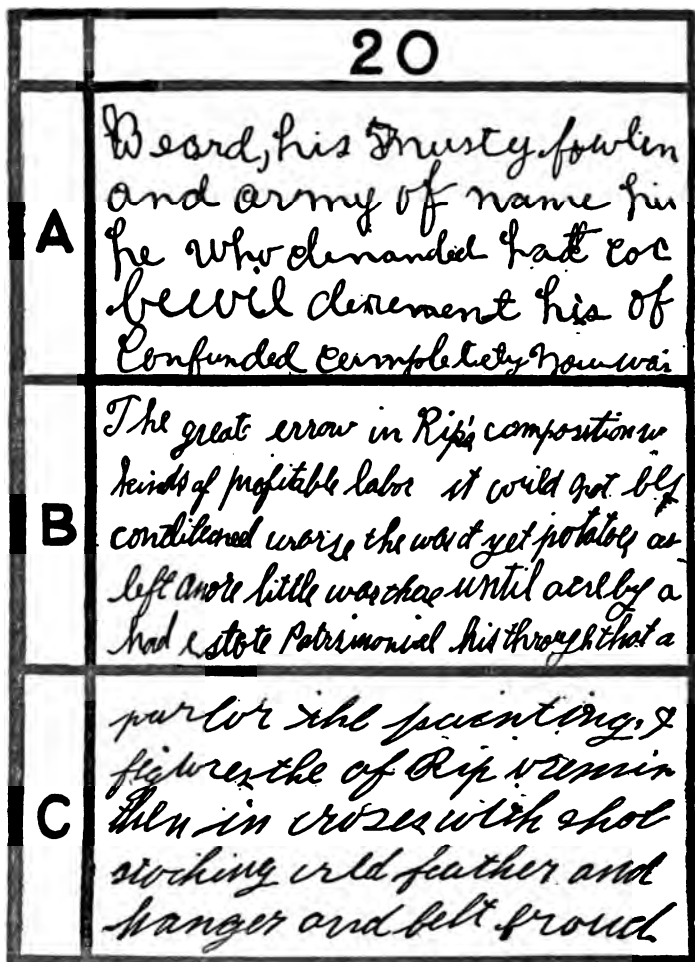 20
A
Beard, his trusty fowlin
and army of name his
he who demanded hat coc
bewil derement his of
Confunded completety now was
B
The great error in Rip's composition w
kinds of profitable labor it could not be
conditioned worse the worst yet potatoes as
left more little was thae until acre by a
had estate Patrimonial his through that a
C
parlor the painting, &
figures the of Rip
then in crosses with shot
stocking feather and
hanger and belt broud